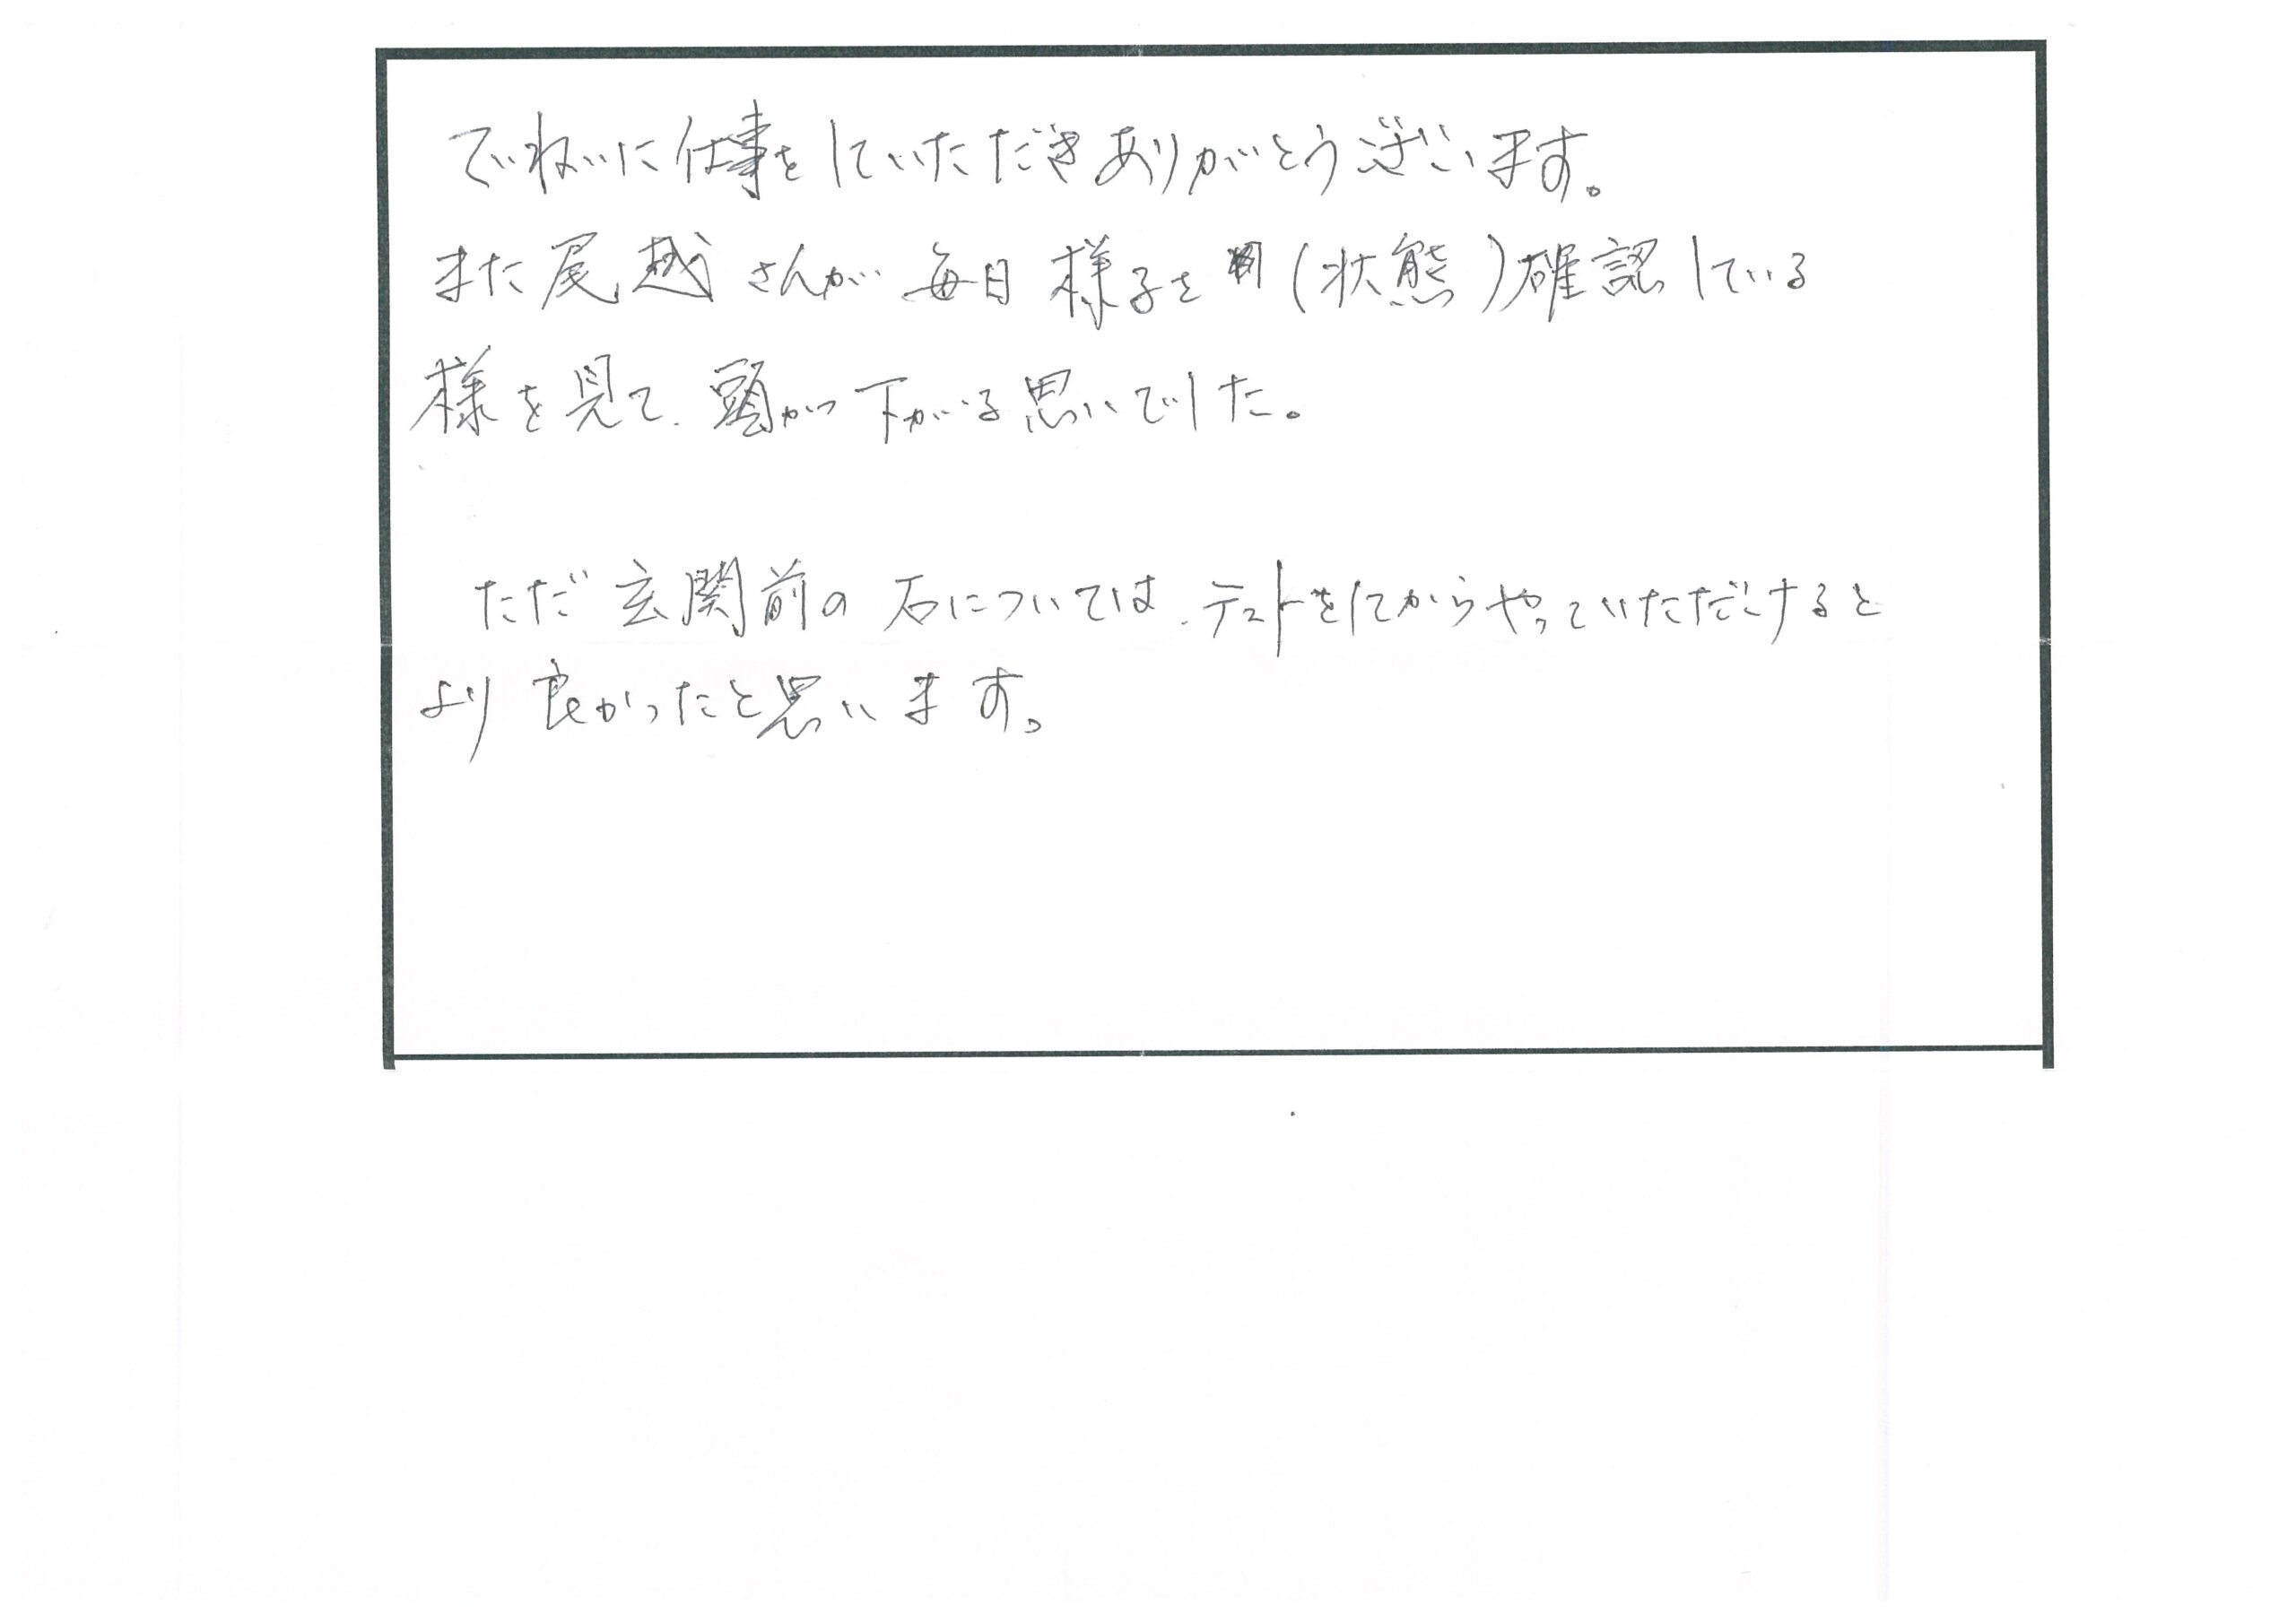 ていねいに仕事をしていただきありがとうございます。
また尾越さんが毎日様子を(状態)確認している
様を見て、頭が下がる思いでした。
ただ玄関前の石については、テストをしてからやっていただけると
より良かったと思います。